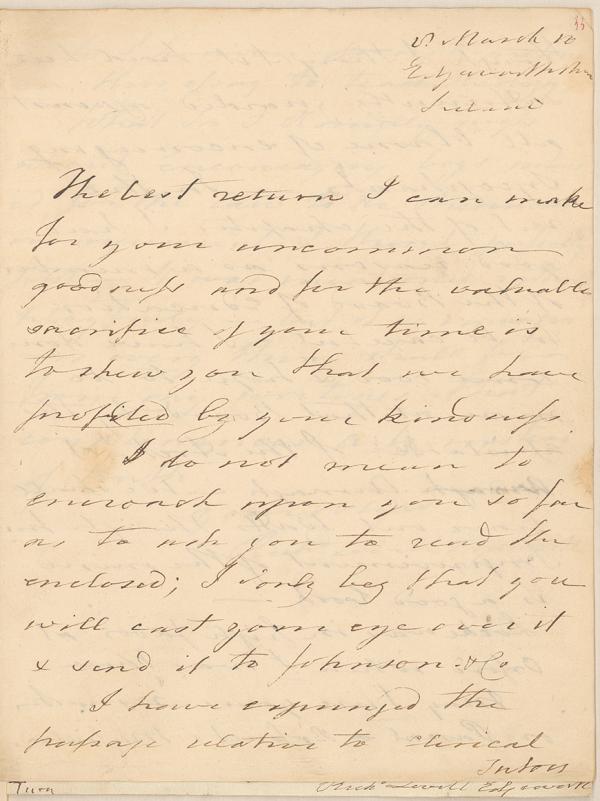 55
8. March 10
Edgeworthstn
Ireland
The best return I can make
for your uncommon
goodness and for the valuable
sacrifice of your time is
to shew you that we have
profited by your kindness.
I do not mean to
encroach upon you so far
as to ask you to read the
enclosed; I only beg that you
will cast your eye over it
& send it to Johnson & Co
I have expunged the
passage relative to clerical
Tutors
Turn
Richd Lovell Edgeworth